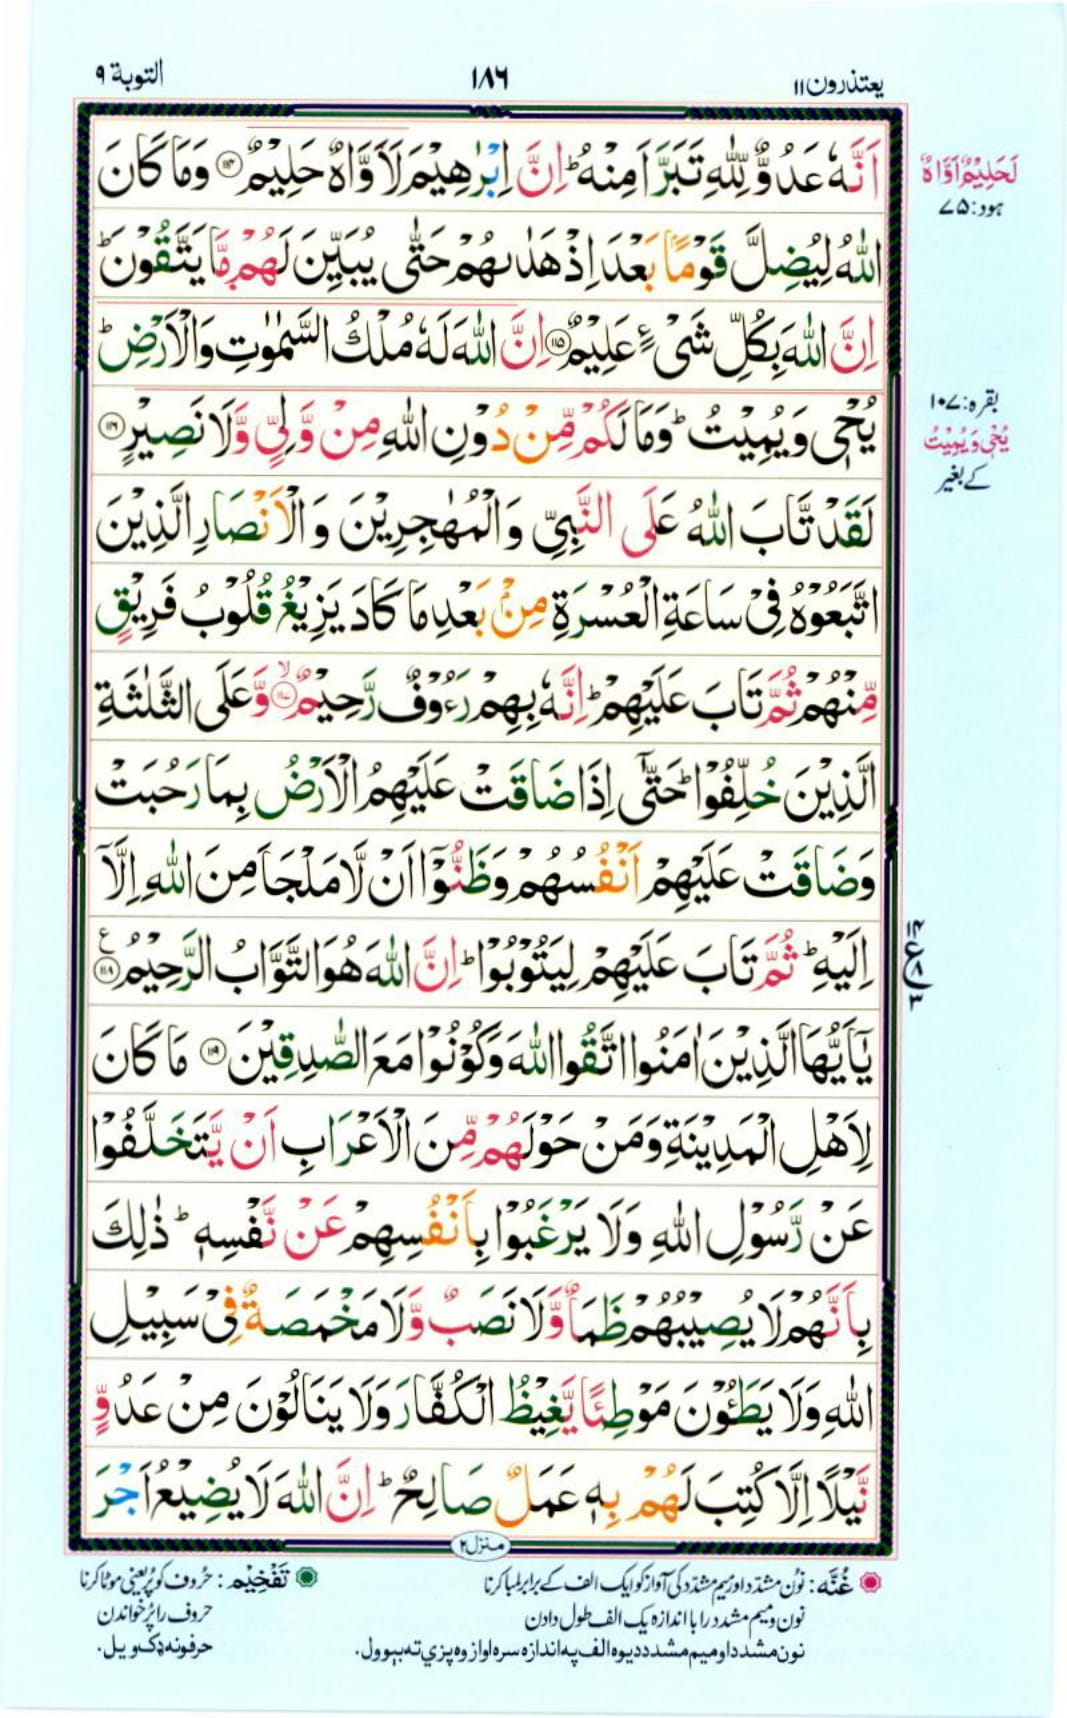 يعتذرون ١١
١٨٦
التوبة ٩
اَنَّهٗ عَدُوٌّ لِّلّٰهِ تَبَرَّاَ مِنْهُ ؕ اِنَّ اِبْرٰهِيْمَ لَاَوَّاهٌ حَلِيْمٌ ﴿۱۱۴﴾ وَمَا كَانَ
اللّٰهُ لِيُضِلَّ قَوْمًۢا بَعْدَ اِذْ هَدٰىهُمْ حَتّٰى يُبَيِّنَ لَهُمْ مَّا يَتَّقُوْنَ ؕ
اِنَّ اللّٰهَ بِكُلِّ شَىْءٍ عَلِيْمٌ ﴿۱۱۵﴾ اِنَّ اللّٰهَ لَهٗ مُلْكُ السَّمٰوٰتِ وَالْاَرْضِ ؕ
يُحْىٖ وَيُمِيْتُ ؕ وَمَا لَكُمْ مِّنْ دُوْنِ اللّٰهِ مِنْ وَّلِىٍّ وَّلَا نَصِيْرٍ ﴿۱۱۶﴾
لَقَدْ تَّابَ اللّٰهُ عَلَى النَّبِىِّ وَالْمُهٰجِرِيْنَ وَالْاَنْصَارِ الَّذِيْنَ
اتَّبَعُوْهُ فِىْ سَاعَةِ الْعُسْرَةِ مِنْۢ بَعْدِ مَا كَادَ يَزِيْغُ قُلُوْبُ فَرِيْقٍ
مِّنْهُمْ ثُمَّ تَابَ عَلَيْهِمْ ؕ اِنَّهٗ بِهِمْ رَءُوْفٌ رَّحِيْمٌ ﴿۱۱۷﴾ۙ وَّعَلَى الثَّلٰثَةِ
الَّذِيْنَ خُلِّفُوْا ؕ حَتّٰٓى اِذَا ضَاقَتْ عَلَيْهِمُ الْاَرْضُ بِمَا رَحُبَتْ
وَضَاقَتْ عَلَيْهِمْ اَنْفُسُهُمْ وَظَنُّوْٓا اَنْ لَّا مَلْجَاَ مِنَ اللّٰهِ اِلَّآ
اِلَيْهِ ؕ ثُمَّ تَابَ عَلَيْهِمْ لِيَتُوْبُوْا ؕ اِنَّ اللّٰهَ هُوَ التَّوَّابُ الرَّحِيْمُ ﴿۱۱۸﴾ ع
يٰٓاَيُّهَا الَّذِيْنَ اٰمَنُوا اتَّقُوا اللّٰهَ وَكُوْنُوْا مَعَ الصّٰدِقِيْنَ ﴿۱۱۹﴾ مَا كَانَ
لِاَهْلِ الْمَدِيْنَةِ وَمَنْ حَوْلَهُمْ مِّنَ الْاَعْرَابِ اَنْ يَّتَخَلَّفُوْا
عَنْ رَّسُوْلِ اللّٰهِ وَلَا يَرْغَبُوْا بِاَنْفُسِهِمْ عَنْ نَّفْسِهٖ ؕ ذٰلِكَ
بِاَنَّهُمْ لَا يُصِيْبُهُمْ ظَمَاٌ وَّلَا نَصَبٌ وَّلَا مَخْمَصَةٌ فِىْ سَبِيْلِ
اللّٰهِ وَلَا يَطَـُٔوْنَ مَوْطِئًا يَّغِيْظُ الْكُفَّارَ وَلَا يَنَالُوْنَ مِنْ عَدُوٍّ
نَّيْلًا اِلَّا كُتِبَ لَهُمْ بِهٖ عَمَلٌ صَالِحٌ ؕ اِنَّ اللّٰهَ لَا يُضِيْعُ اَجْرَ
منزل ٢
لَحَلِيْمٌ اَوَّاهٌ
ہود: ۷۵
بقرہ: ۱۰۷
يُحْىٖ وَيُمِيْتُ
کے بغیر
۱۴
ع
۸
۳
غُنّه : نون مشدّد اور میم مشدّد کی آواز کو ایک الف کے برابر لمبا کرنا
نون و میم مشدد را با اندازه یک الف طول دادن
نون مشدد او ميم مشدد د يوه الف په اندازه سره اواز وه پزي ته بېوول.
تَفْخِيْم : حُروف کو پُر یعنی موٹا کرنا
حروف را پُر خواندن
حرفونه ډک ويل.